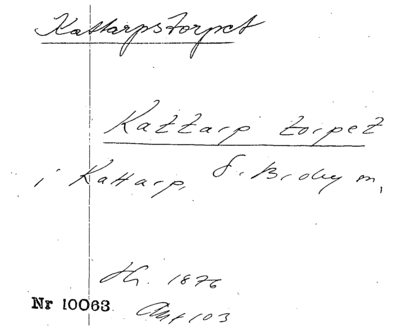 Kattarpstorpet
Kattarp torpet
i Kattarp, S. Broby m,
Hr. 1876
Nr 10063
103